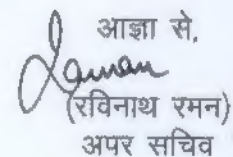 आज्ञा से,
(रविनाथ रमन)
अपर सचिव